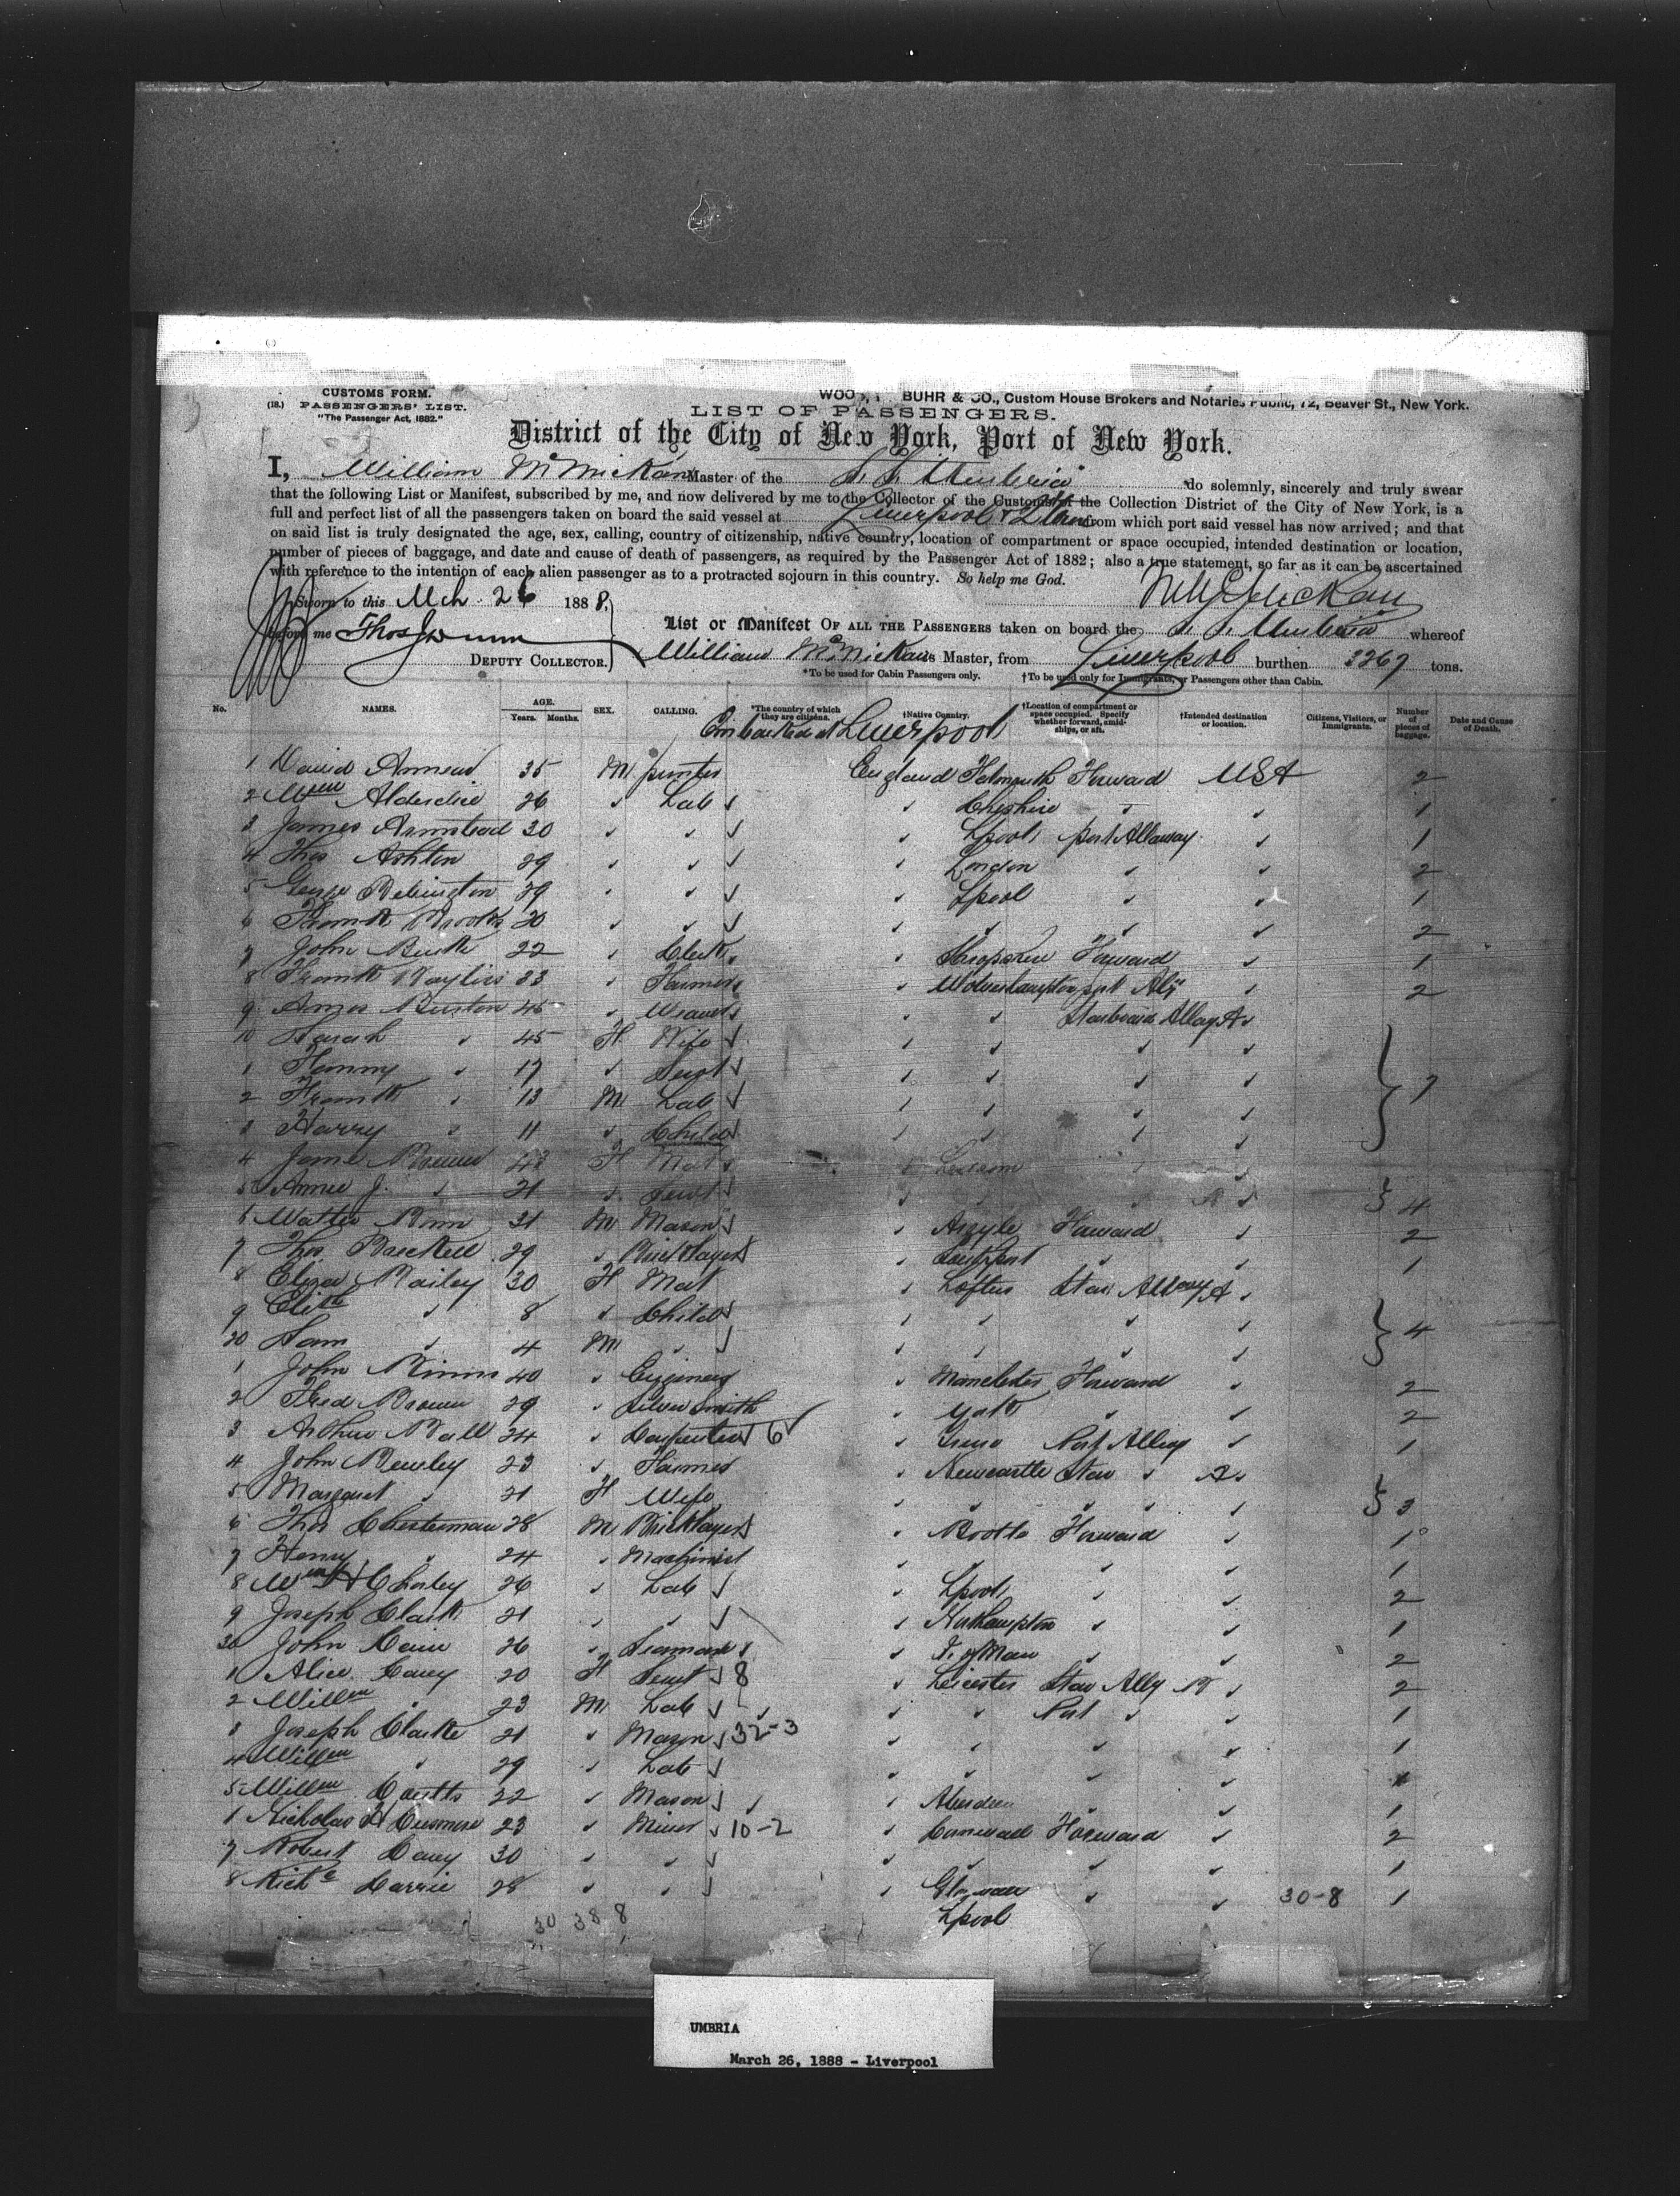 CUSTOMS FORM.
(18.) PASSENGERS' LIST.
"The Passenger Act, 1882."
BUHR & CO., Custom House Brokers and Notaries Public, 72, Beaver St., New York.
LIST OF PASSENGERS.
District of the City of New York, Port of New York.
I, William McMickan Master of the S. S. Umbria do solemnly, sincerely and truly swear
that the following List or Manifest, subscribed by me, and now delivered by me to the Collector of the Customs of the Collection District of the City of New York, is a
full and perfect list of all the passengers taken on board the said vessel at Liverpool from which port said vessel has now arrived; and that
on said list is truly designated the age, sex, calling, country of citizenship, native country, location of compartment or space occupied, intended destination or location,
number of pieces of baggage, and date and cause of death of passengers, as required by the Passenger Act of 1882; also a true statement, so far as it can be ascertained
with reference to the intention of each alien passenger as to a protracted sojourn in this country. So help me God.
Sworn to this Mch 26 1888,
before me Thos
DEPUTY COLLECTOR.
List or Manifest OF ALL THE PASSENGERS taken on board the S. S. Umbria whereof
William McMickan is Master, from Liverpool burthen 3367 tons.
*To be used for Cabin Passengers only. †To be used only for Immigrants, or Passengers other than Cabin.
No. NAMES. AGE. Years. Months. SEX. CALLING. *The country of which they are citizens. †Native Country. †Location of compartment or space occupied. Specify whether forward, amidships, or aft. †Intended destination or location. Citizens, Visitors, or Immigrants. Number of pieces of baggage. Date and Cause of Death.
Embarked at Liverpool
1 David 35 M England Falmouth Forward USA 2
2 Wm 26 Lab Cheshire 1
3 James Armstead 30 Lpool port Allaway 1
4 Thos Ashton 29 London 2
5 George Bebington 29 Lpool 1
6 Frank Brooks 20 2
7 John 22 Clerk Shropshire Forward 1
8 Frank Bayliss 33 Farmer Wolverhampton port Aly 2
9 Amos Burton 45 Weaver Starboard Allay A
10 Sarah 45 F Wife
1 Fanny 17 Servt 7
2 Frank 13 M Lab
3 Harry 11 Child
4 Jane F Mat
5 Annie J. 21 Servt 4
6 Walter 31 M Mason Argyle Forward 2
7 Thos 29 Bricklayer Southport 1
8 Eliza Bailey 30 F Mat Loftus Star Allway A
9 Elith 8 Child 4
20 Sam 4 M
1 John 40 Engineer Manchester Forward 2
2 Fred Brown 29 Silver Smith York 2
3 Arthur Ball 24 Carpenter 6 Port Allway 1
4 John 23 Farmer Newcastle Star
5 Margaret 21 F Wife 3
6 Thos Chesterman 28 M Bricklayer Bootle Forward 1
7 Henry 24 Machinist 1
8 Wm H Chorley 26 Lab Lpool 2
9 Joseph Clark 21 Northampton 1
30 John 26 Seaman I. of Man 2
1 Alice 20 F Servt 8 Leicester Star Ally 2
2 Willm 23 M Lab Port 1
3 Joseph Clarke 21 Mason 32-3 1
4 Willm 29 Lab 1
5 Willm Coutts 22 Mason Aberdeen 1
Nicholas H 23 Miner 10-2 Cornwall Forward 2
7 Robert 30 1
8 28 30-8 1
Lpool
30 38 8
UMBRIA
March 26, 1888 - Liverpool